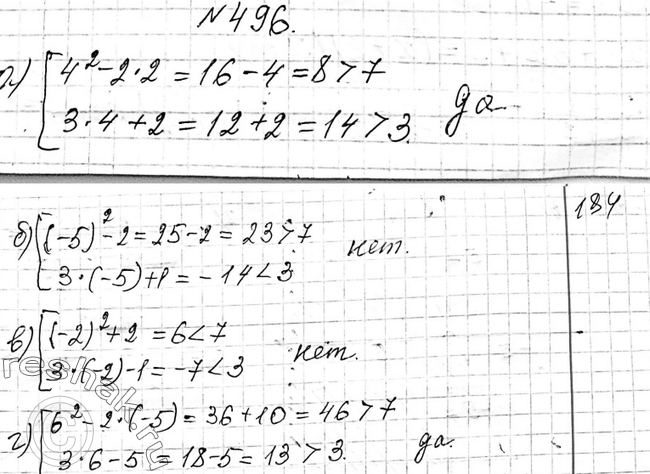 №496.
а) [4² - 2·2 = 16 - 4 = 8 > 7
3·4 + 2 = 12 + 2 = 14 > 3. да
б) [(-5)² - 2 = 25 - 2 = 23 > 7
3·(-5) + 1 = -14 < 3 нет.
184
в) [(-2)² + 2 = 6 < 7
3·(-2) - 1 = -7 < 3 нет.
г) [6² - 2·(-5) = 36 + 10 = 46 > 7
3·6 - 5 = 18 - 5 = 13 > 3. да.
reshak.ru